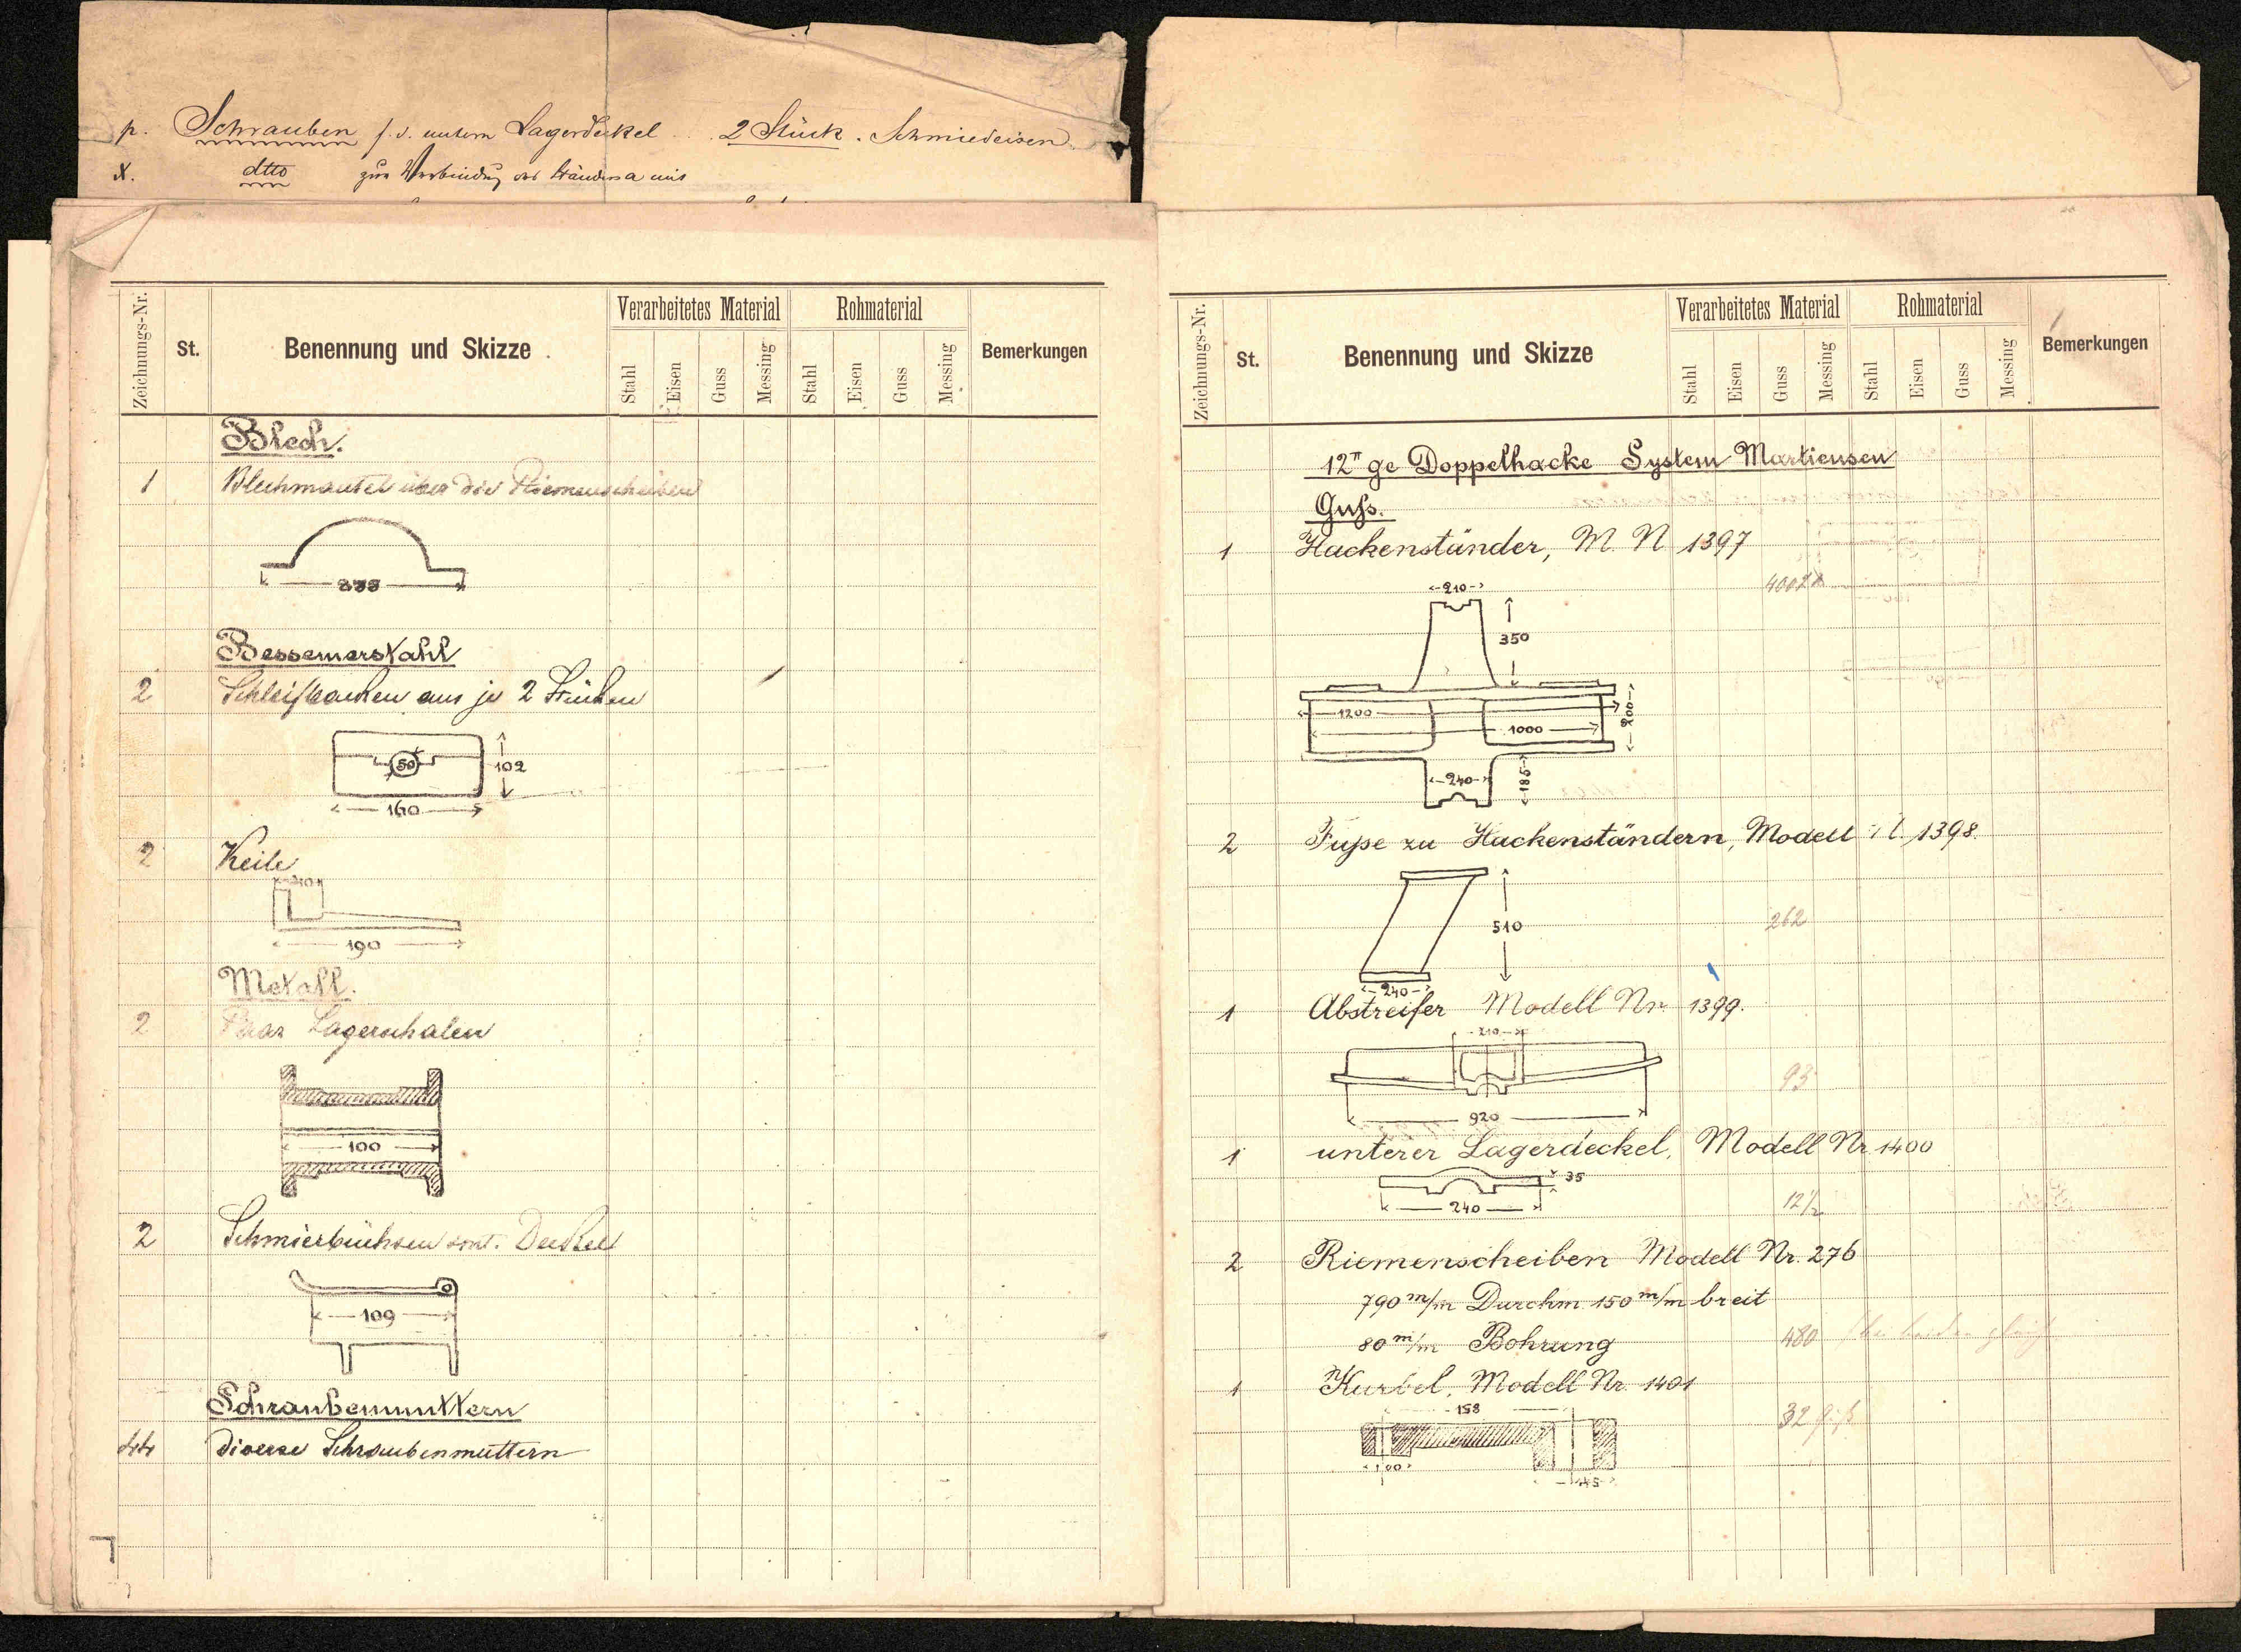 p. Schrauben f. d. untern Lagerdeckel .. 2 Stück. Schmiedeisen
x. dtto zur Verbindung des Ständers a mit
Zeichnungs-Nr.
St.
Benennung und Skizze
Verarbeitetes Material
Rohmaterial
Bemerkungen
Stahl Eisen Guss Messing Stahl Eisen Guss Messing
Blech.
1 Blechmantel über die Riemenscheiben
Bessemerstahl
2 Schleifbacken aus je 2 Stücken
50
102
160
2 Keile
190
Metall.
2 Paar Lagerschalen
100
2 Schmierbüchsen smt. Deckel
109
Schraubenmuttern
diverse Schraubenmuttern
Zeichnungs-Nr.
St.
Benennung und Skizze
Verarbeitetes Material
Rohmaterial
Bemerkungen
Stahl Eisen Guss Messing Stahl Eisen Guss Messing
12" ge Doppelhacke System Martiensen
Guſs.
1 Hackenständer, M. N 1397
210
350
1200
1000
240
185
2 Füße zu Hackenständern, Modell N. 1398
510
262
240
1 Abstreifer Modell Nr. 1399.
210
93
920
1 unterer Lagerdeckel, Modell Nr. 1400
35
240
12½
2 Riemenscheiben Modell Nr. 276
790 m/m Durchm 150 m/m breit
80 m/m Bohrung 480
1 Kurbel, Modell Nr. 1401
158
32
100
145